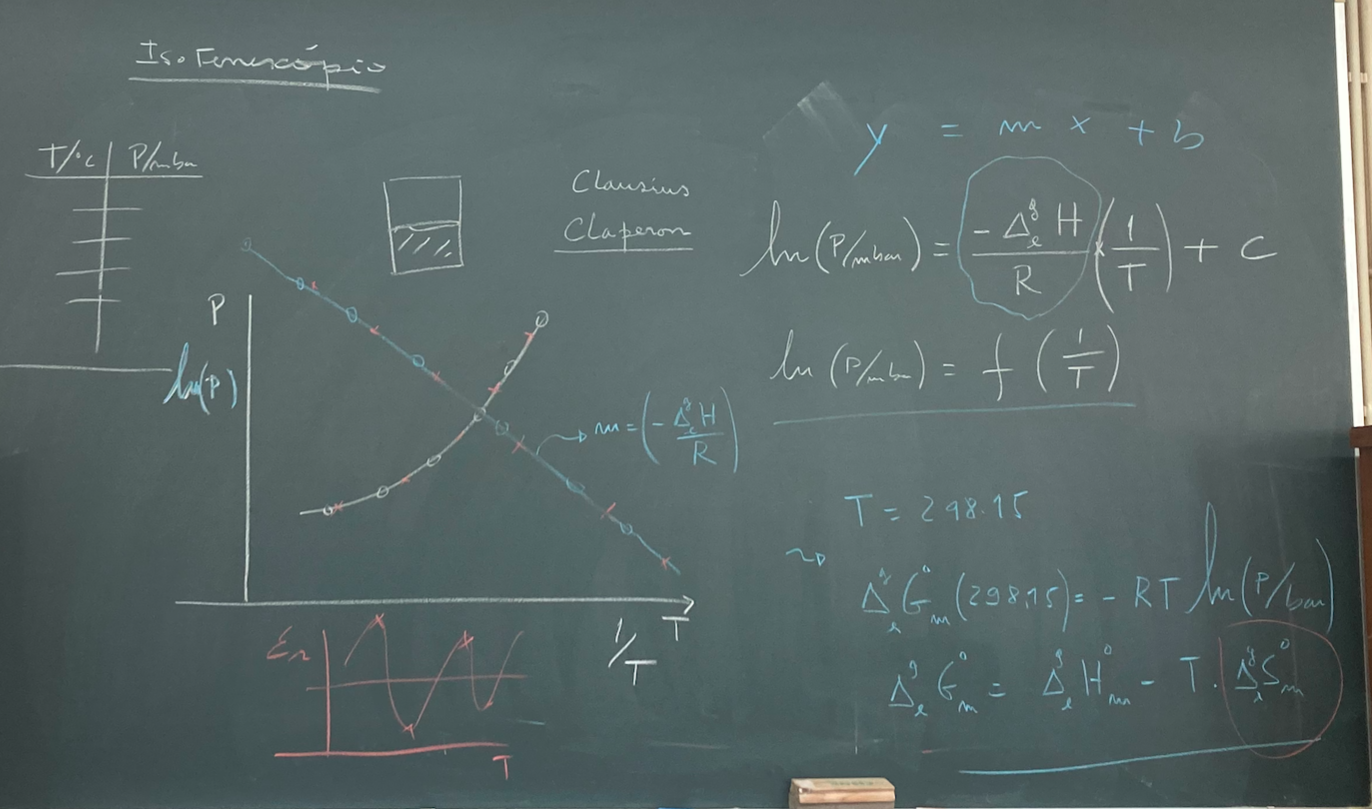 IsoTeniscópio
T/°C P/mbar
Clausius
Claperon
P
ln(P)
m = (- Δₑᵍ H / R)
1/T T
εr
T
y = m x + b
ln(P/mbar) = - Δₑᵍ H / R × (1/T) + C
ln(P/mbar) = f (1/T)
T = 298.15
Δₑᵍ G°ₘ (298,15) = - RT ln(P/bar)
Δₑᵍ G°ₘ = Δₑᵍ H°ₘ - T . Δₑᵍ S°ₘ